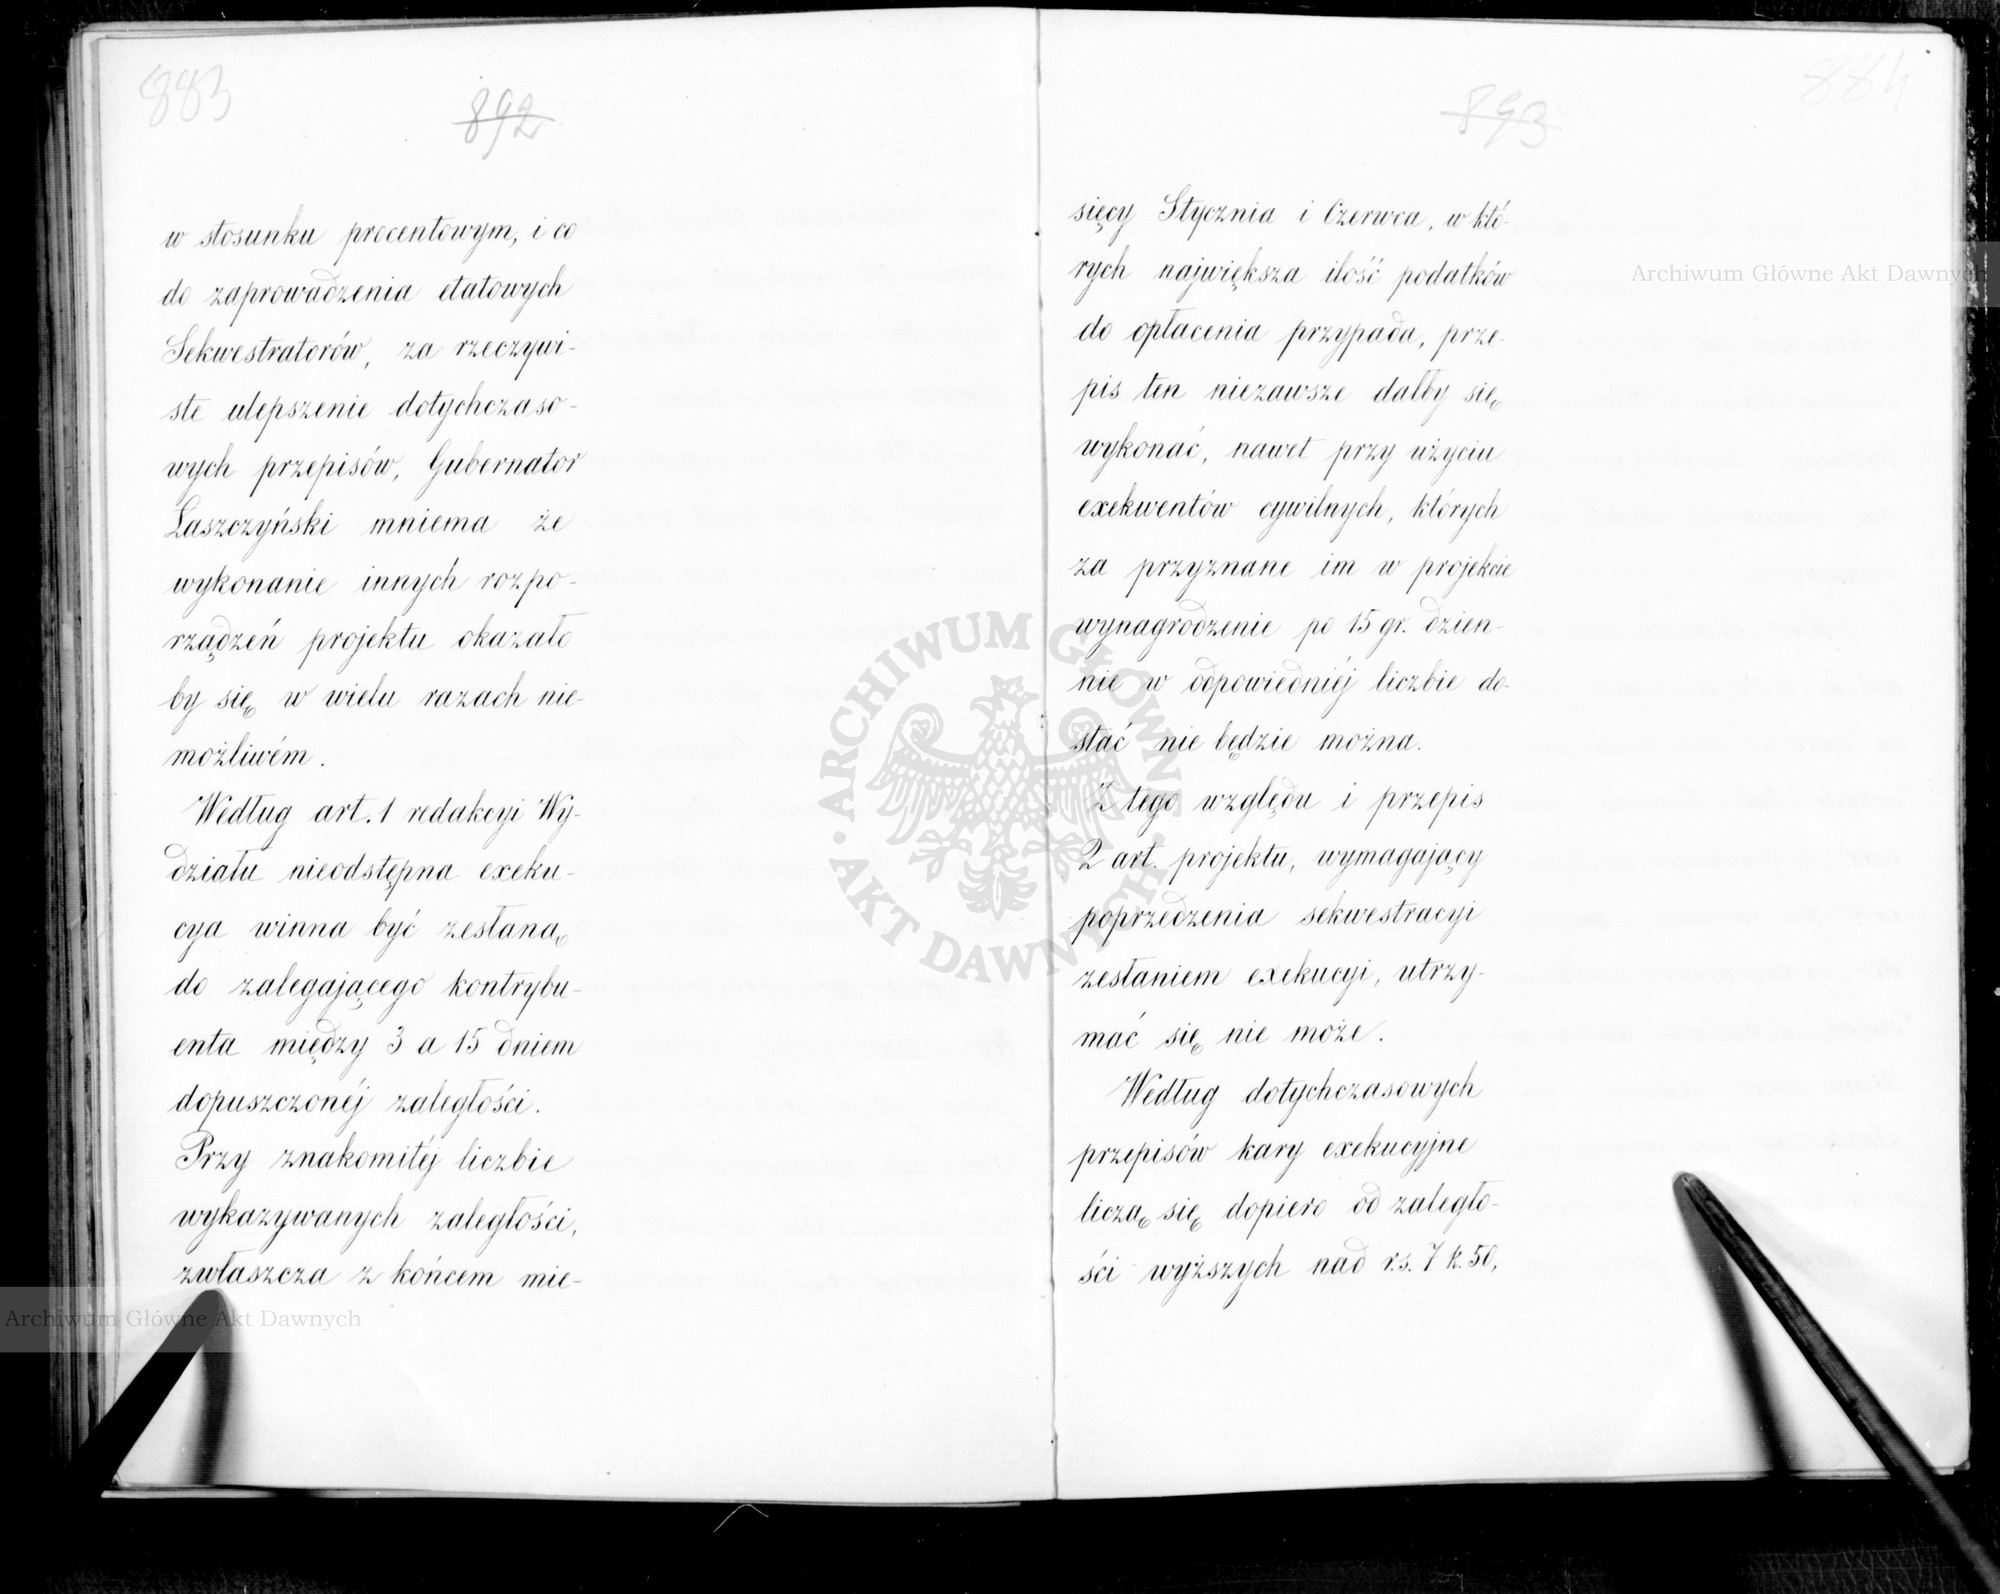 883
892
w stosunku procentowym, i co
do zaprowadzenia etatowych
Sekwestratorów, za rzeczywi-
ste ulepszenie dotychczaso-
wych przepisów, Gubernator
Łaszczyński mniema że
wykonanie innych rozpo-
rządzeń projektu okazało
by się w wielu razach nie-
możliwém.
Według art. 1 redakcyi Wy-
działu nieodstępna exeku-
cya winna być zesłaną
do zalegającego kontrybu-
enta między 3 a 15 dniem
dopuszczonéj zaległości.
Przy znakomitéj liczbie
wykazywanych zaległości,
zwłaszcza z końcem mie-
884
893
sięcy Stycznia i Czerwca, w któ-
rych największa ilość podatków
do opłacenia przypada, prze-
pis ten niezawsze dałby się
wykonać, nawet przy użyciu
exekwentów cywilnych, których
za przyznane im w projekcie
wynagrodzenie po 15 gr. dzien-
nie w odpowiedniéj liczbie do-
stać nie będzie można.
Z tego względu i przepis
2 art. projektu, wymagający
poprzedzenia sekwestracyi
zesłaniem exekucyi, utrzy-
mać się nie może.
Według dotychczasowych
przepisów kary exekucyjne
liczą się dopiero od zaległo-
ści wyższych nad rs. 7 k. 50,
Archiwum Główne Akt Dawnych
ARCHIWUM GŁÓWNE
AKT DAWNYCH
Archiwum Główne Akt Dawnych